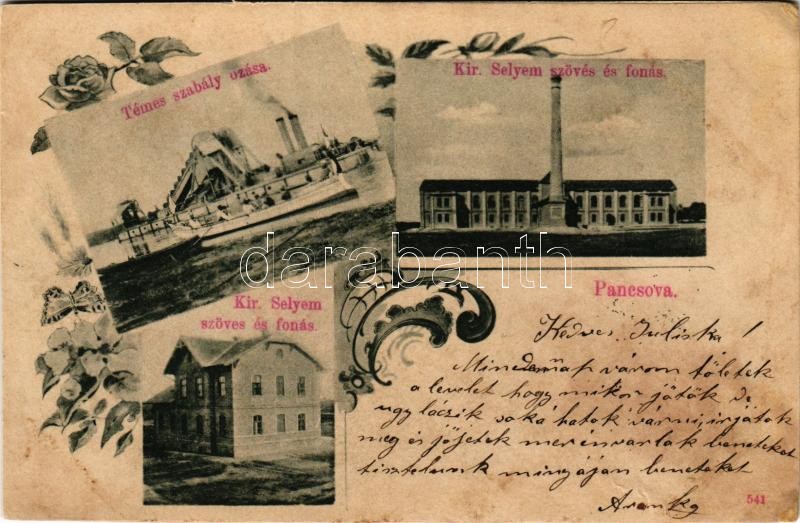 Témes szabály ozása.
Kir. Selyem szövés és fonás.
darabanth
Kir. Selyem
szöves és fonás.
Pancsova.
Kedves Juliska!
Mindennap várom töletek
a levelet hogy mikor jötök de
ugy láczik soká hatok várni, irjatok
meg és jöjetek mer én varlak beneteket
tisztelunk minyájan beneteket
Aranka
541